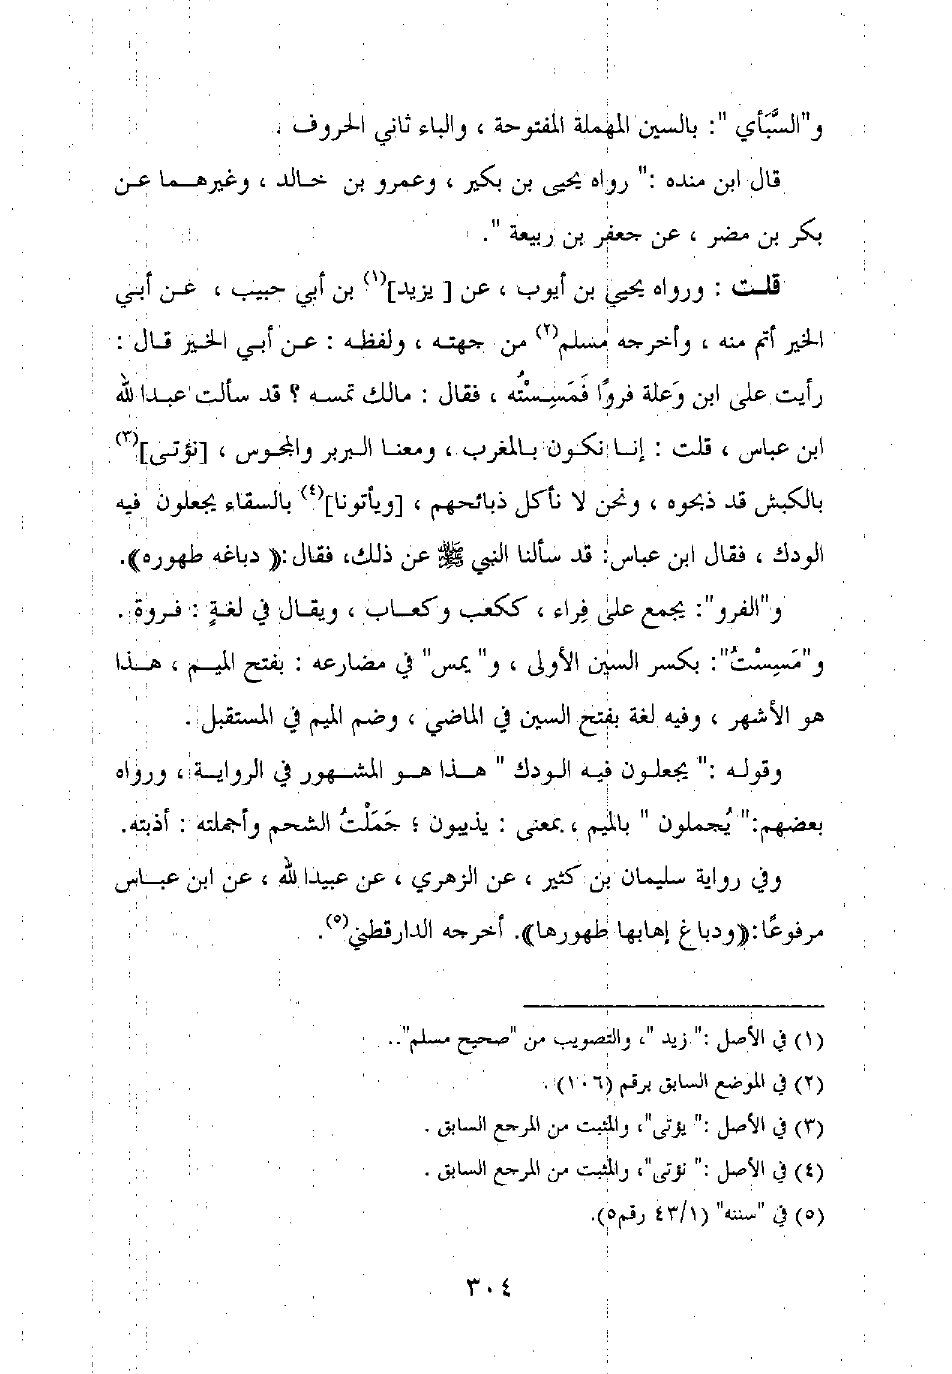 و"السَّبَأي ": بالسين المهملة المفتوحة ، والباء ثاني الحروف .
قال ابن منده :" رواه يحيى بن بكير ، وعمرو بن خالد ، وغيرهما عن
بكر بن مضر ، عن جعفر بن ربيعة ".
قلت : ورواه يحيي بن أيوب ، عن [ يزيد](١) بن أبي حبيب ، عن أبي
الخير أتم منه ، وأخرجه مسلم(٢) من جهته ، ولفظه : عن أبي الخير قال :
رأيت على ابن وَعلة فروًا فَمَسِسْتُه ، فقال : مالك تمسه ؟ قد سألت عبدالله
ابن عباس ، قلت : إنا نكون بالمغرب ، ومعنا البربر والمجوس ، [نؤتى](٣)
بالكبش قد ذبحوه ، ونحن لا نأكل ذبائحهم ، [ويأتونا](٤) بالسقاء يجعلون فيه
الودك ، فقال ابن عباس: قد سألنا النبي ﷺ عن ذلك، فقال :﴿ دباغه طهوره﴾.
و"الفرو": يجمع على فِراء ، ككعب وكعاب ، ويقال في لغةٍ : فروة .
و"مَسِسْتُ": بكسر السين الأولى ، و" يمس" في مضارعه : بفتح الميم ، هذا
هو الأشهر ، وفيه لغة بفتح السين في الماضي ، وضم الميم في المستقبل .
وقوله :" يجعلون فيه الودك " هذا هو المشهور في الرواية ، ورواه
بعضهم:" يُجملون " بالميم ، بمعنى : يذيبون ؛ جَمَلْتُ الشحم وأجملته : أذبته.
وفي رواية سليمان بن كثير ، عن الزهري ، عن عبيدالله ، عن ابن عباس
مرفوعًا:﴿ودباغ إهابها طهورها﴾. أخرجه الدارقطني(٥).
(١) في الأصل :" زيد "، والتصويب من "صحيح مسلم"..
(٢) في الموضع السابق برقم (١٠٦) .
(٣) في الأصل :" يؤتى"، والمثبت من المرجع السابق .
(٤) في الأصل :" نؤتى"، والمثبت من المرجع السابق .
(٥) في "سننه" (٤٣/١ رقم٥).
٣٠٤